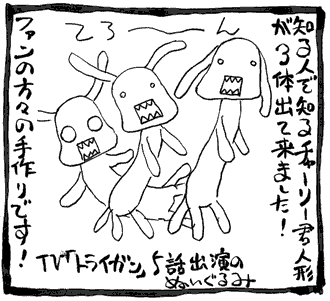 知る人ぞ知るチャーリー君人形
が3体出て来ました!
てろ〜〜ん
ファンの方々の手作りです!
TV「トライガン」5話出演の
ぬいぐるみ